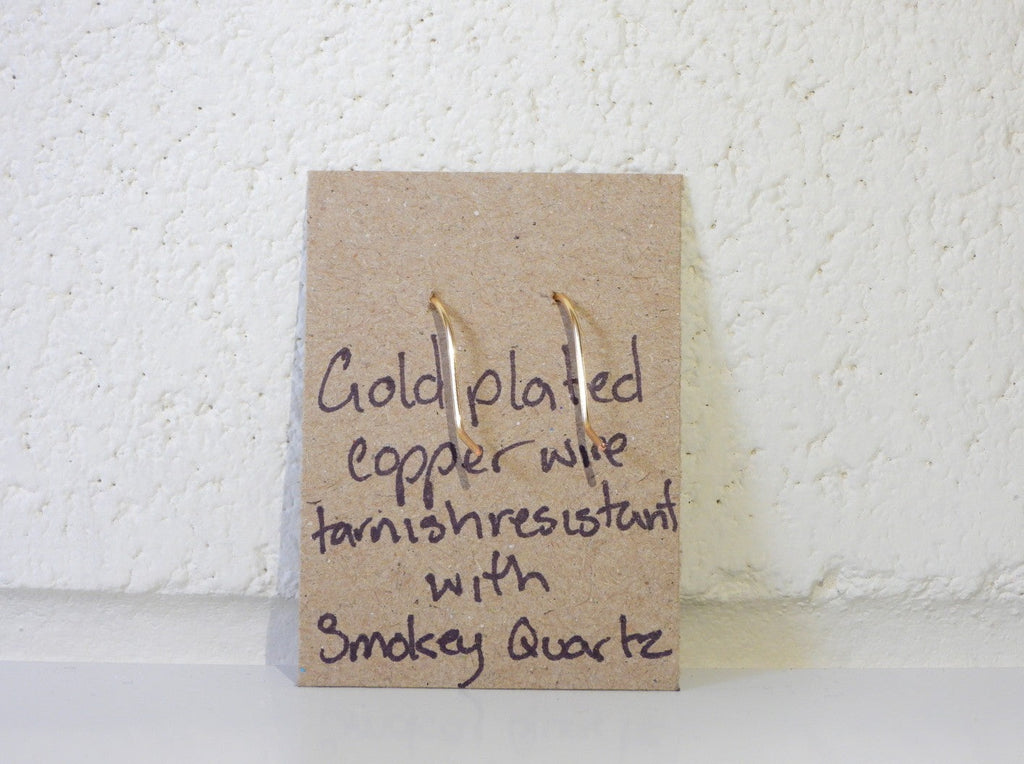 Gold plated
copper wire
tarnish resistant
with
Smokey Quartz